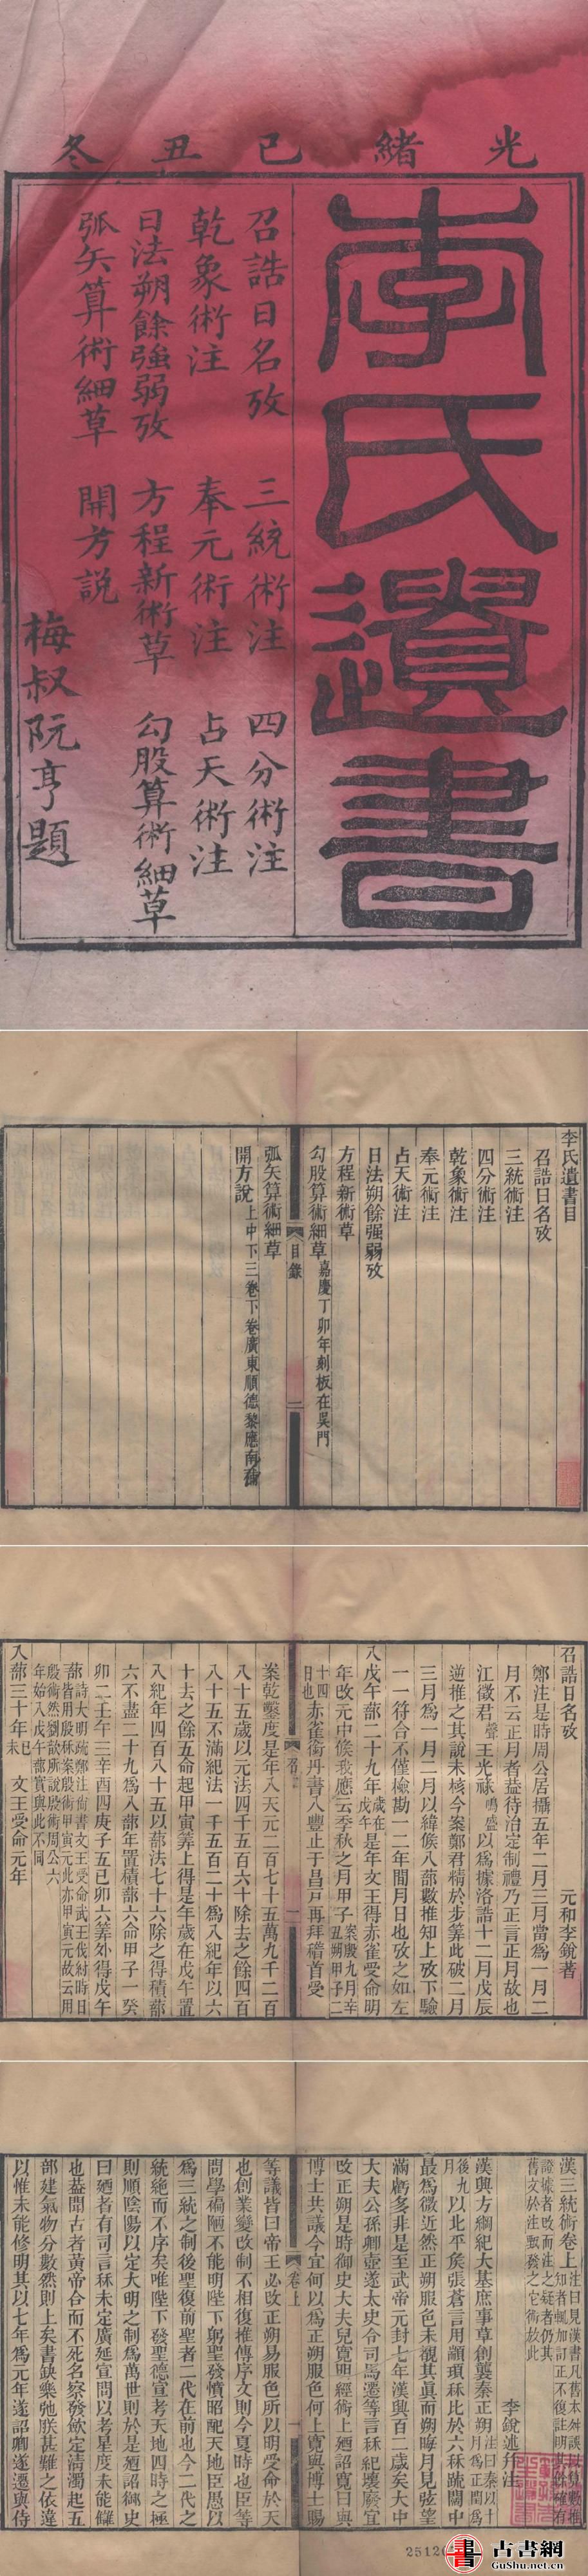 光緒己丑冬
李氏遺書
召誥日名攷　三統術注　四分術注
乾象術注　奉元術注　占天術注
日法朔餘強弱攷　方程新術草　勾股算術細草
弧矢算術細草　開方說
梅叔阮亨題
李氏遺書目
召誥日名攷
三統術注
四分術注
乾象術注
奉元術注
占天術注
日法朔餘强弱攷
方程新術草
勾股算術細草　嘉慶丁卯年刻板在吳門
目錄
弧矢算術細草
開方說　上中下三卷下卷廣東順德黎應南補
召誥日名攷　元和李銳著
鄭注是時周公居攝五年二月三月當爲一月二
月不云正月者葢待治定制禮乃正言正月故也
江徵君聲王光祿鳴盛以爲據洛誥十二月戊辰
逆推之其說未核今案鄭君精於步算此破二月
三月爲一月二月以緯候入蔀數推知上攷下驗
一一符合不僅檢勘一二年間月日也攷之如左
入戊午蔀二十九年歲在戊午是年文王得赤雀受命明
年改元中候我應云季秋之月甲子
赤雀銜丹書入豐止于昌戶再拜稽首受
案乾鑿度是年入天元二百七十五萬九千二百
八十五歲以元法四千五百六十除去之餘四百
八十五不滿紀法一千五百二十爲入紀年以六
十去之餘五命起甲寅算上得是年歲在戊午置
入紀年四百八十五以蔀法七十六除之得積蔀
六不盡二十九爲入蔀年置積蔀六命甲子一癸
卯二壬午三辛酉四庚子五己卯六算外得戊午
蔀
入蔀三十年己未文王受命元年
漢三統術卷上
李銳述并注
漢興方綱紀大基庶事草創襲秦正朔
以北平矦張蒼言用顓頊秝比於六秝疏闊中
最爲微近然正朔服色未覩其眞而朔晦月見弦望
滿虧多非是至武帝元封七年漢興百二歲矣大中
大夫公孫卿壺遂太史令司馬遷等言秝紀壞廢宜
改正朔是時御史大夫兒寬明經術上迺詔寬曰與
博士共議今宜何以爲正朔服色何上寬與博士賜
卷上
等議皆曰帝王必改正朔易服色所以明受命於天
也創業變改制不相復推傳序文則今夏時也臣等
問學褊陋不能明陛下躬聖發憤昭配天地臣愚以
爲三統之制後聖復前聖者二代在前也今二代之
統絕而不序矣唯陛下發聖德宣考天地四時之極
則順陰陽以定大明之制爲萬世則於是迺詔御史
曰迺者有司言秝未定廣延宣問以考星度未能讎
也葢聞古者黃帝合而不死名察發斂定清濁起五
部建氣物分數然則上矣書缺樂弛朕甚難之依違
以惟未能修明其以七年爲元年遂詔卿遂遷與侍
古書網
GuShu.net.cn